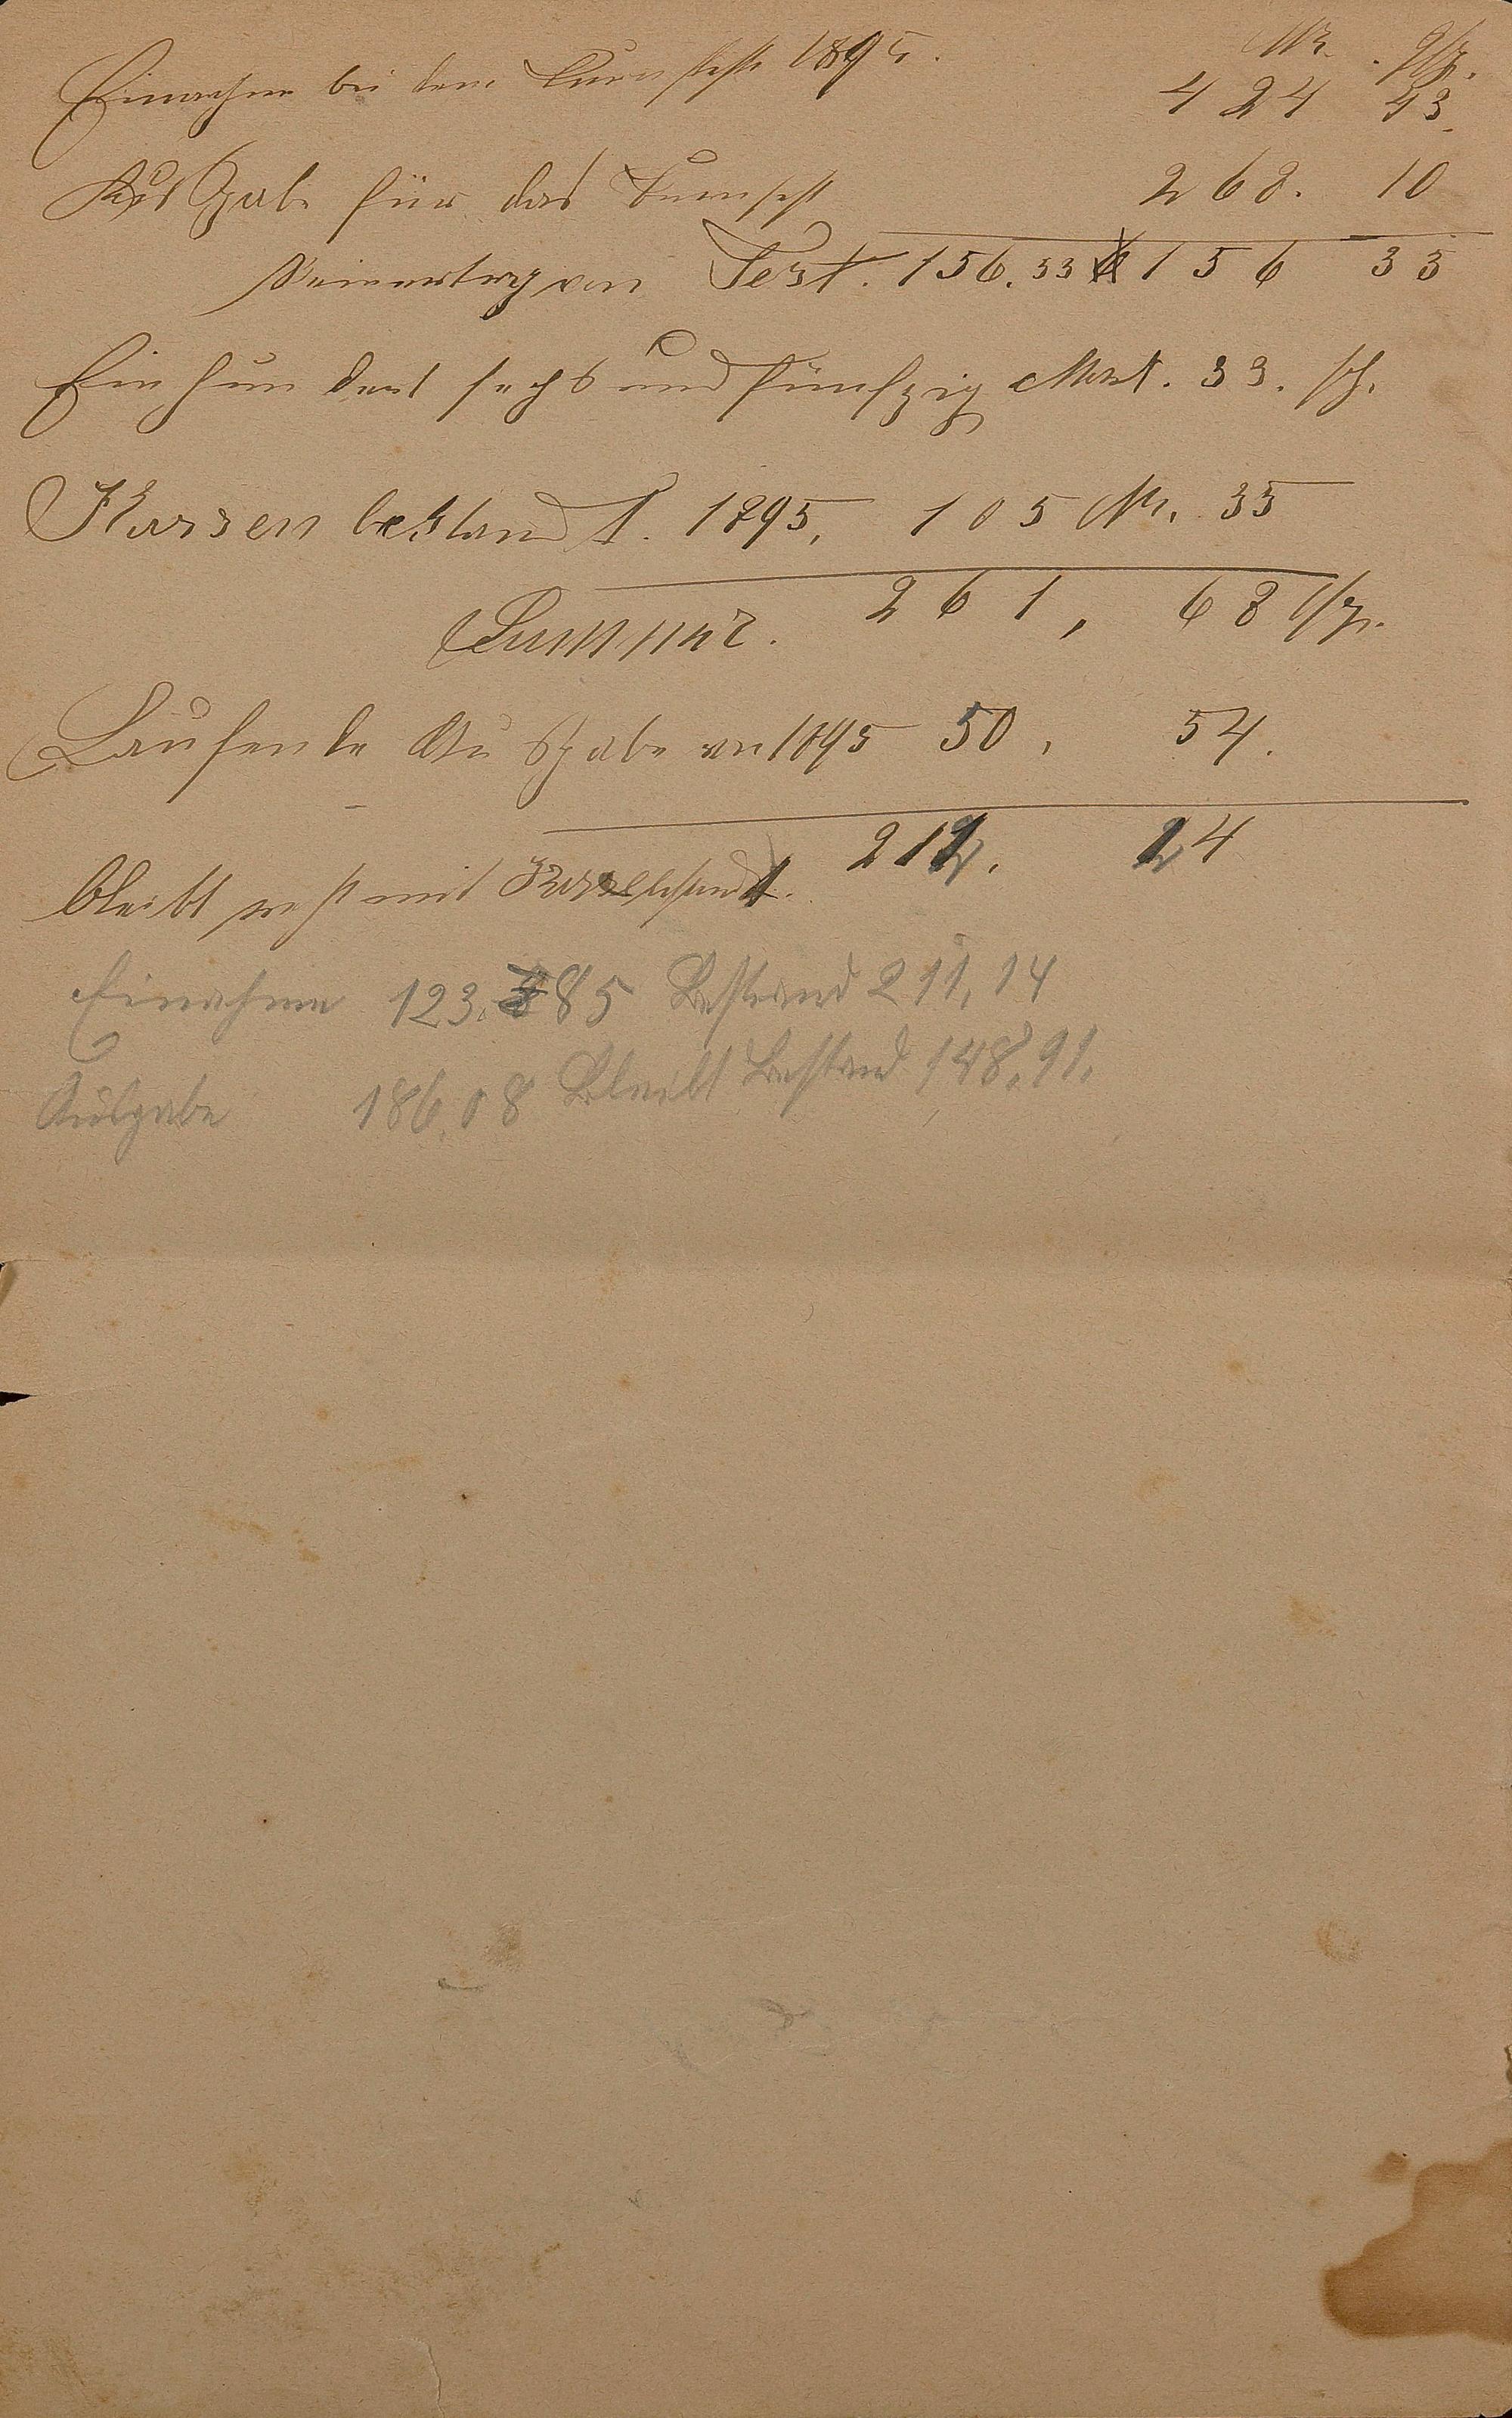 Mk. Pfg.
Einnahme bei dem Turnfeste 1895. 424 43.
Ausgabe für das Turnfest 268. 10
Reinertrag von Fest. 156.33 156 33
Ein hundert sechs und fünfzig Mark. 33. Pf.
Kassen bestandt. 1895, 105 Mk. 35
Summe. 261, 68 Pfg.
Laufende Ausgabe von 1895 50, 54.
211, 14
bleibt rest mit Kassebestandt.
Einahme 123.85 Bestand 211,14
Ausgabe 186,08 Bleibt Bestand 148,91.